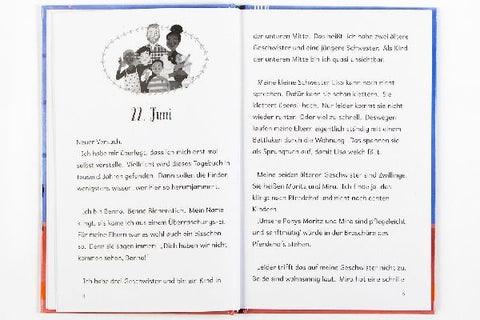 22. Juni
Neuer Versuch.
Ich habe mir überlegt, dass ich mich erst mal
selbst vorstelle. Vielleicht wird dieses Tagebuch in
tausend Jahren gefunden. Dann sollen die Finder
wenigstens wissen, wer hier so herumjammert.
Ich bin Benno. Benno Bienenstich. Mein Name
klingt, als käme ich aus einem Überraschungs-Ei.
Für meine Eltern war es wohl auch ein bisschen
so. Denn sie sagen immer: „Dich haben wir nicht
kommen sehen, Benno!"
Ich habe drei Geschwister und bin ein Kind in
der unteren Mitte. Das heißt: Ich habe zwei ältere
Geschwister und eine jüngere Schwester. Als Kind
der unteren Mitte bin ich quasi unsichtbar.
Meine kleine Schwester Lisa kann noch nicht
sprechen. Dafür kann sie schon klettern. Sie
klettert überall hoch. Nur leider kommt sie nicht
wieder runter. Oder viel zu schnell. Deswegen
laufen meine Eltern eigentlich ständig mit einem
Bettlaken durch die Wohnung. Das spannen sie
als Sprungtuch auf, damit Lisa weich fällt.
Meine beiden älteren Geschwister sind Zwillinge.
Sie heißen Moritz und Mira. Ich finde ja, das
klingt nach Pferdehof und nicht nach echten
Kindern.
„Unsere Ponys Moritz und Mira sind pflegeleicht
und sanftmütig" würde in der Broschüre des
Pferdehofs stehen.
Leider trifft das auf meine Geschwister nicht zu.
Beide sind wahnsinnig laut. Mira hat eine schrille